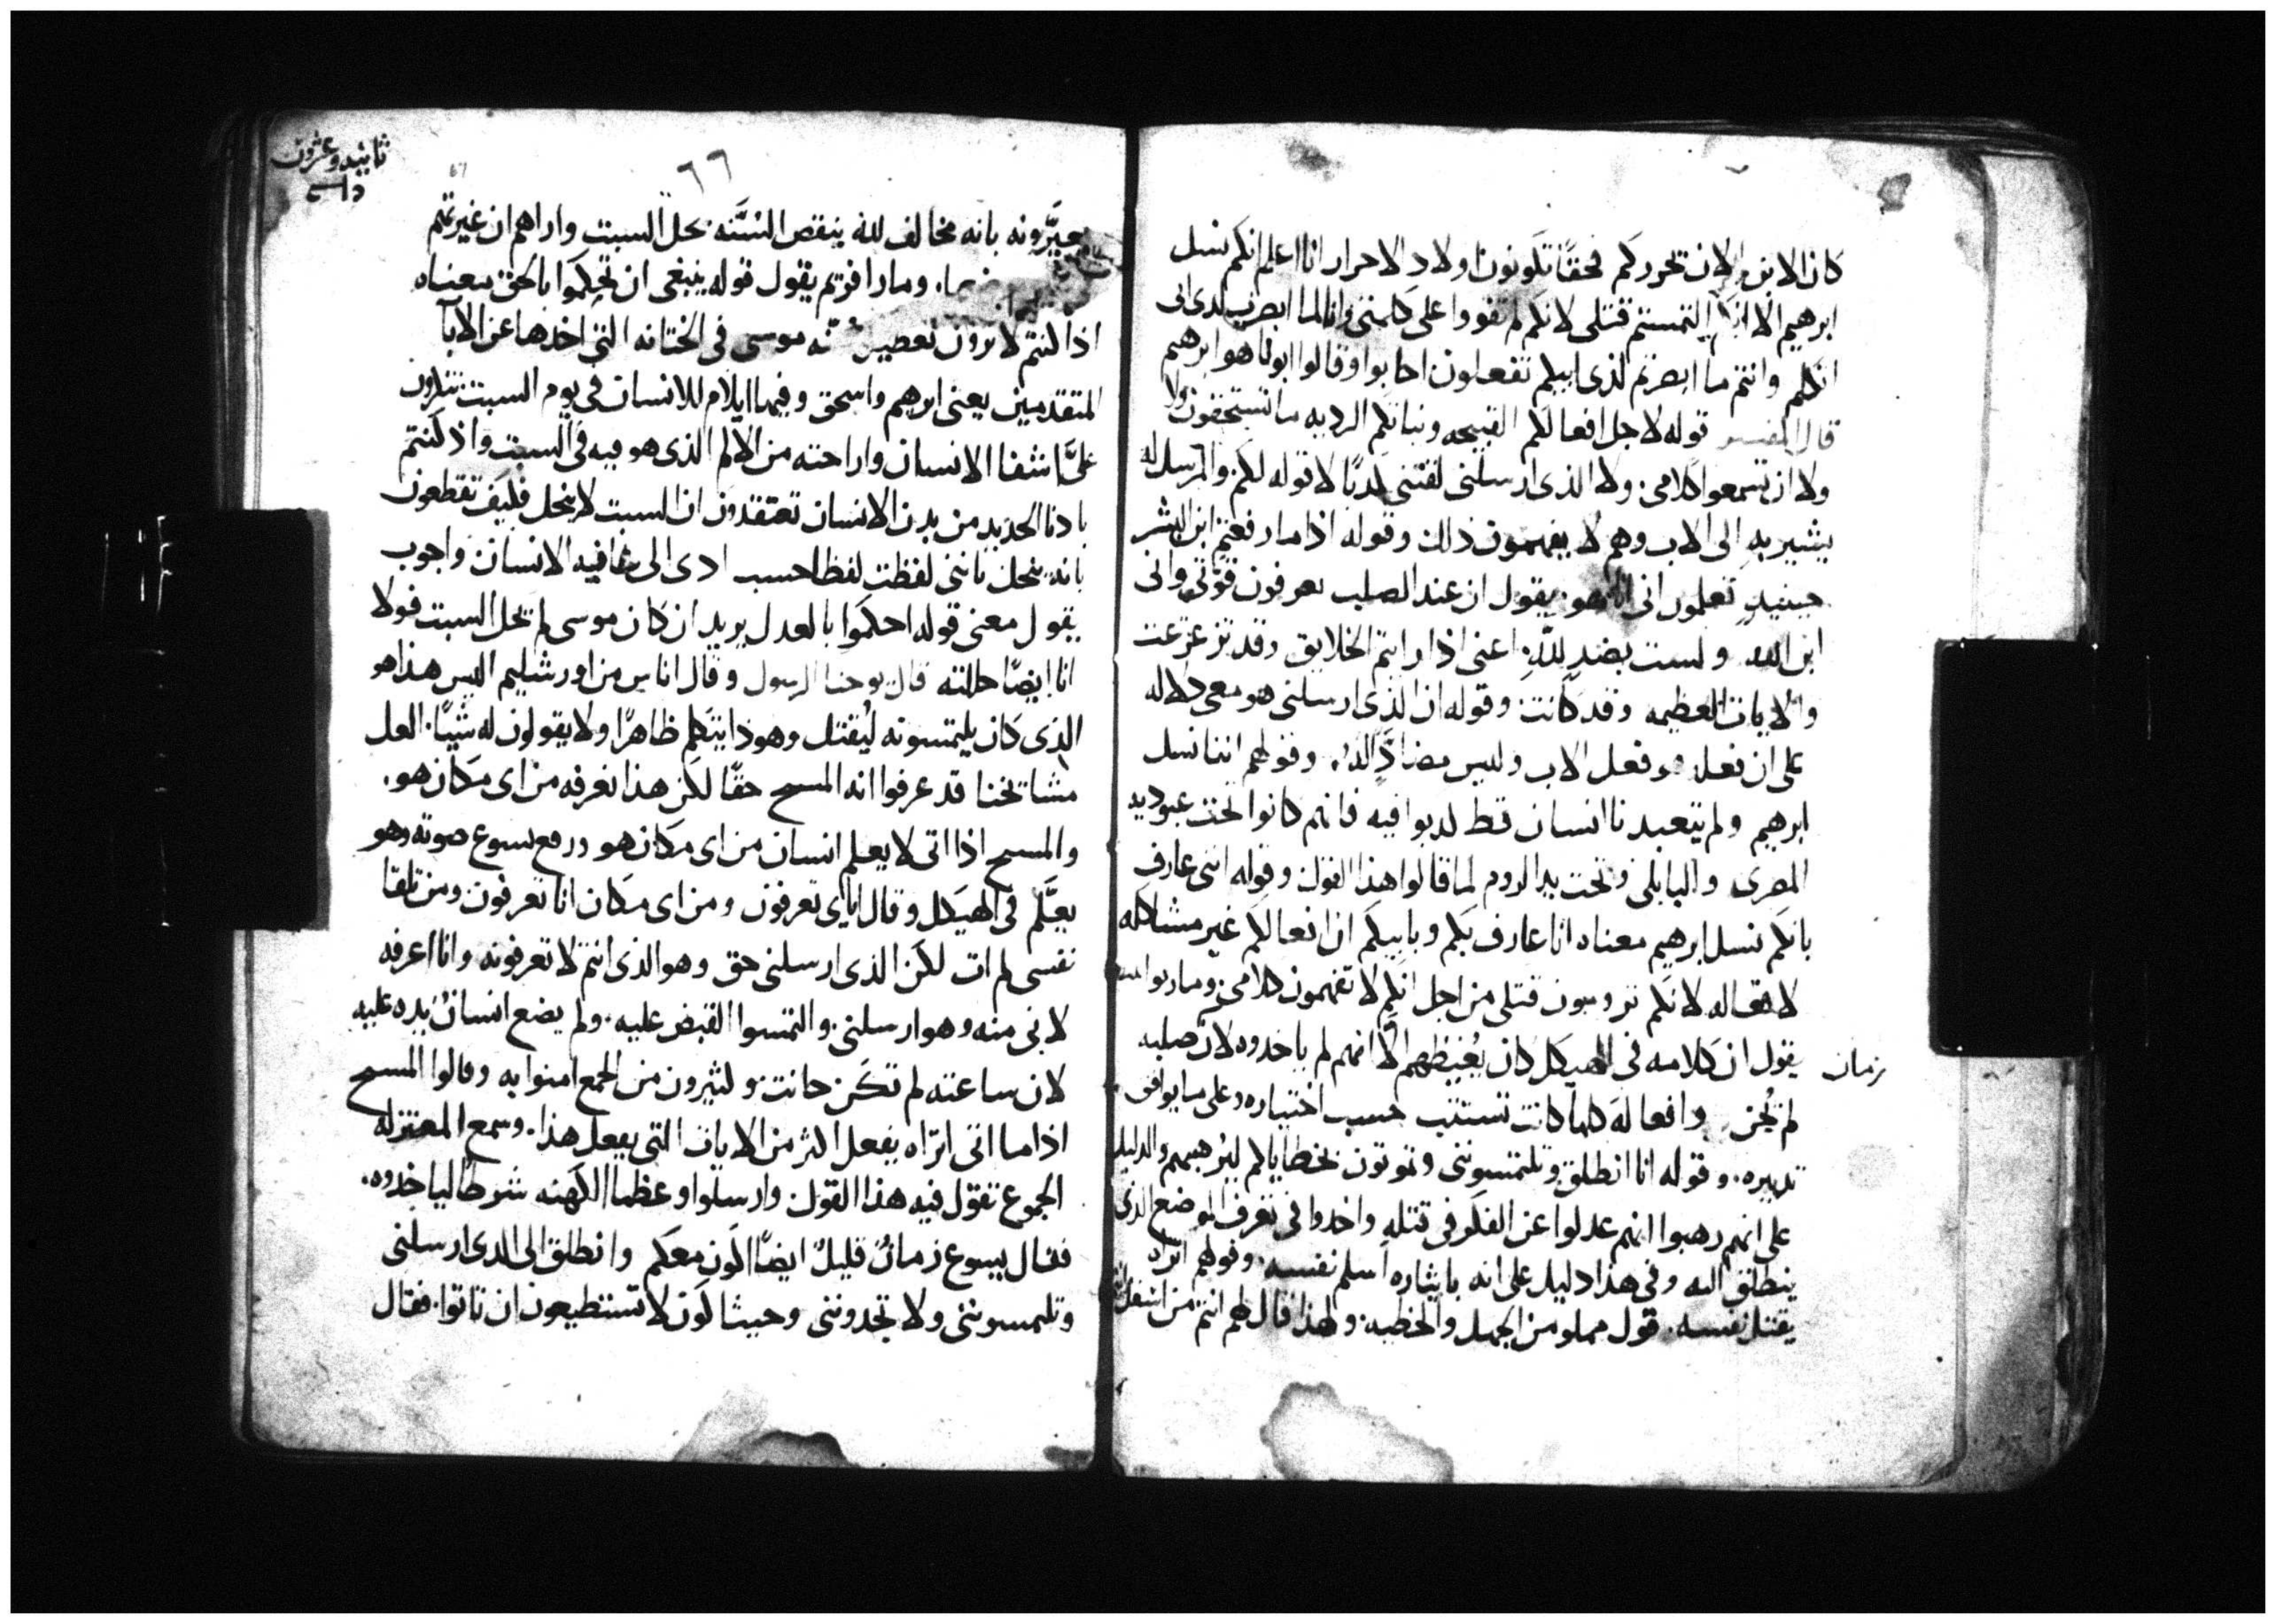 كان الابن الان تحرركم فحقًا تكونون اولاد الاحرار انا اعلم انكم نسل
ابرهيم الا انكم التمستم قتلى لانكم لم تقووا على كلمتى وانا لما ابصرت لدى ابى
اتكلم وانتم ما ابصرتم لدى ابيكم تفعلون اجابوا وقالوا ابونا هو ابرهيم
قال المفسر قوله لاجل افعالكم القبيحه ونياتكم الرديه ما تستحقون ولا
ولا ان تسمعوا كلامى ولا الذى ارسلنى لفتنى لدنا لا قوله لكم والمرسل له
يشير به الى الاب وهم لا يفهمون ذلك وقوله اذا ما رفعتم ابن البشر
حينيد تعلمون انى انا هو يقول ان عند الصلب تعرفون قوتى وانى
ابن الله ولست بضد لله اعنى اذا رايتم الخلايق وقد تزعزعت
والايات العظيمه وقد كانت وقوله ان الذى ارسلنى هو معى دلاله
على ان فعله هو فعل الاب وليس مضادًا لله وقولهم اننا نسل
ابرهيم ولم يتعبدنا انسان قط لدبوا فيه فانهم كانوا تحت عبوديه
المصرى والبابلى وتحت يد الروم لما قالوا هذا القول وقوله اننى عارف
بانكم نسل ابرهيم معناه انا عارف بكم وبابيكم ان افعالكم غير مشاكله
لافعاله لانكم ترومون قتلى من اجل انكم لا تفهمون كلامى وماريوانيس
يقول ان كلامه فى الهيكل كان يغيظهم الا انهم لم ياخدوه لان صلبه
زمان
لم يُحن وافعاله كلها كانت تستتب حسب اختياره وعلى ما يوافق
تدبيره وقوله انا انطلق وتلتمسوننى وتموتون بخطاياكم ليرهبهم والدليل
على انهم رهبوا انهم عدلوا عن الفكر فى قتله واخدوا فى تعرف الموضع الذى
ينطلق اليه وفى هذا دليل على انه بايثاره اسلم نفسه وقولهم اتراه
يقتل نفسه قول مملو من الجهل والخطيه ولهذا قال لهم انتم من اسفل
ثانيه وعشرون
٦٦
67
يعيّرونه بانه مخالف لله ينقص السُنَّه بحل السبت واراهم ان غيرتهم
ومار افريم يقول قوله ينبغى ان تحكموا بالحق معناه
اذا كنتم لا ترون تعطيل سنه موسى فى الختانه التى اخدها عن الابآ
المتقدمين يعنى ابرهيم واسحق وفيها ايلام للانسان فى يوم السبت تنكرون
علىَّ اشفا الانسان واراحته من الالم الذى هو فيه فى السبت واذ كنتم
بادنا الحديد من بدن الانسان تعتقدون ان السبت لا ينحل فكيف تقطعون
بانه ينحل باننى لفظت لفظا حسب ادى الى عافيه الانسان واجوب
يقول معنى قوله احكموا بالعدل يريد ان كان موسى لم يحل السبت فولا
انا ايضًا حللته قال يوحنا الرسول وقال اناس من اورشليم اليس هذا هو
الذى كان يلتمسونه ليُقتل وهوذا يتكلم ظاهرًا ولا يقولون له شيًا العل
مشايخنا قد عرفوا انه المسيح حقًا لكن هذا نعرفه من اى مكان هو
والمسيح اذا اتى لا يعلم انسان من اى مكان هو ورفع يسوع صوته وهو
يعلّم فى الهيكل وقال اياى تعرفون ومن اى مكان انا تعرفون ومن تلقا
نفسى لم ات لكن الذى ارسلنى حق وهو الذى انتم لا تعرفونه وانا اعرفه
لانى منه وهو ارسلنى والتمسوا القبض عليه ولم يضع انسان يده عليه
لان ساعته لم تكن حانت وكثيرون من الجمع امنوا به وقالوا المسيح
اذا ما اتى اتراه يفعل اكثر من الايات التى يفعل هذا وسمع المعتزله
الجموع تقول فيه هذا القول وارسلوا وعظما الكهنه شرطًا لياخدوه
فقال يسوع زمانٌ قليلٌ ايضًا اكون معكم وانطلق الى الذى ارسلنى
وتلتمسوننى ولا تجدوننى وحيث اكون لا تستطيعون ان تاتوا فقال